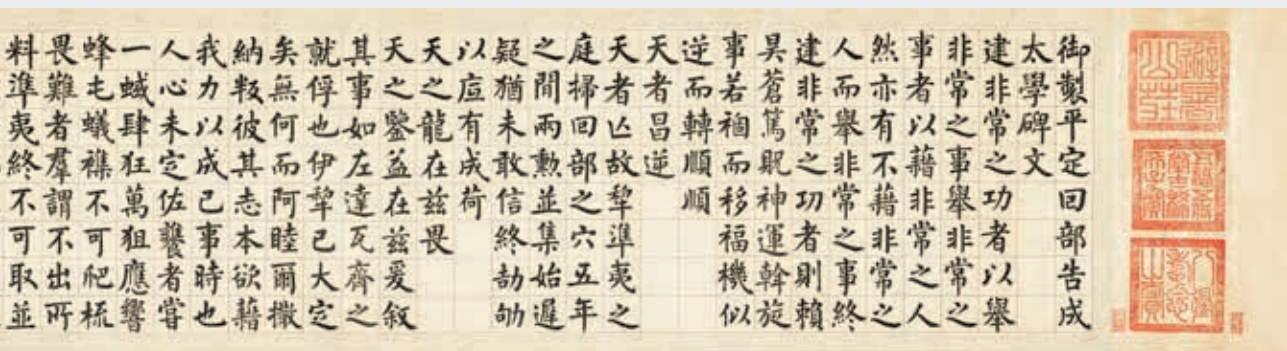 避暑山莊
五福五代堂古稀天子寶
八徵耄念之寶
御製平定回部告成
太學碑文
建非常之功者以舉
非常之事舉非常之
事者以藉非常之人
然亦有不藉非常之
人而舉非常之事終
建非常之功者則賴
昊蒼篤貺神運斡旋
事若禍而移福機似
逆而轉順順
天者昌逆
天者亾故犂準夷之
庭掃回部之穴五年
之間兩勳並集始遲
疑猶未敢信終劼劬
以底有成荷
天之寵在兹畏
天之鑒益在兹爰叙
其事如左達瓦齊之
就俘也伊犂已大定
矣無何而阿睦爾撒
納叛彼其志本欲藉
我力以成己事時也
人心未定佐饔者嘗
一蜮肆狂萬狙應響
蜂屯蟻襍不可爬梳
畏難者羣謂不出所
料準夷終不可取並